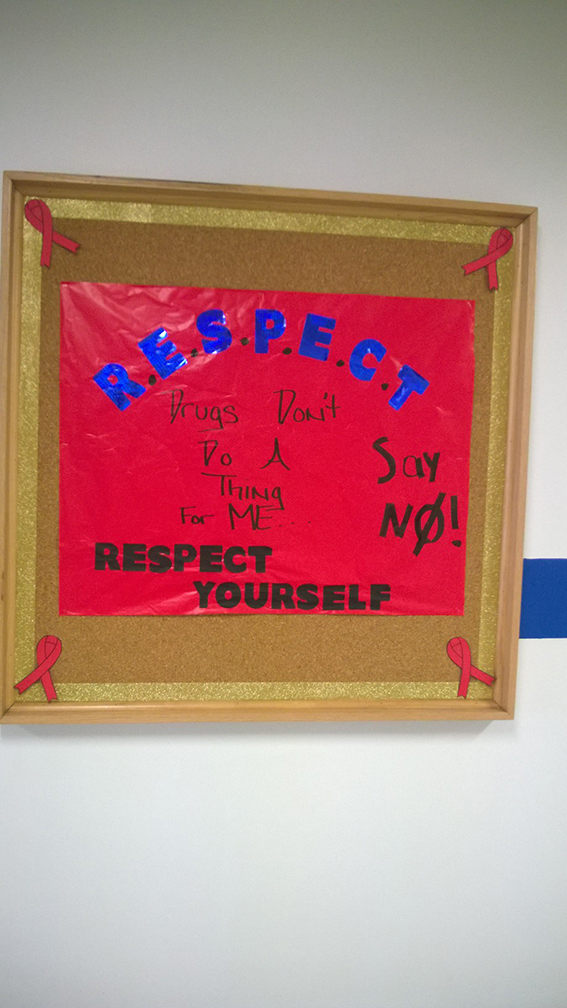 R.E.S.P.E.C.T
Drugs Don't
Do A
Thing
For ME....
Say
NØ!
RESPECT
YOURSELF